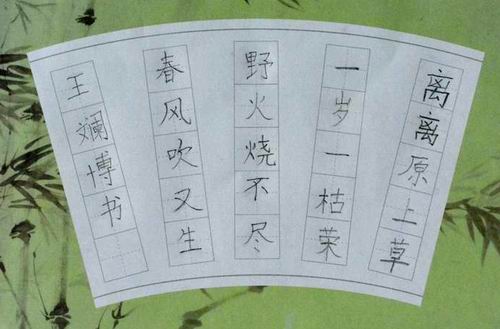 离离原上草
一岁一枯荣
野火烧不尽
春风吹又生
王斓博书